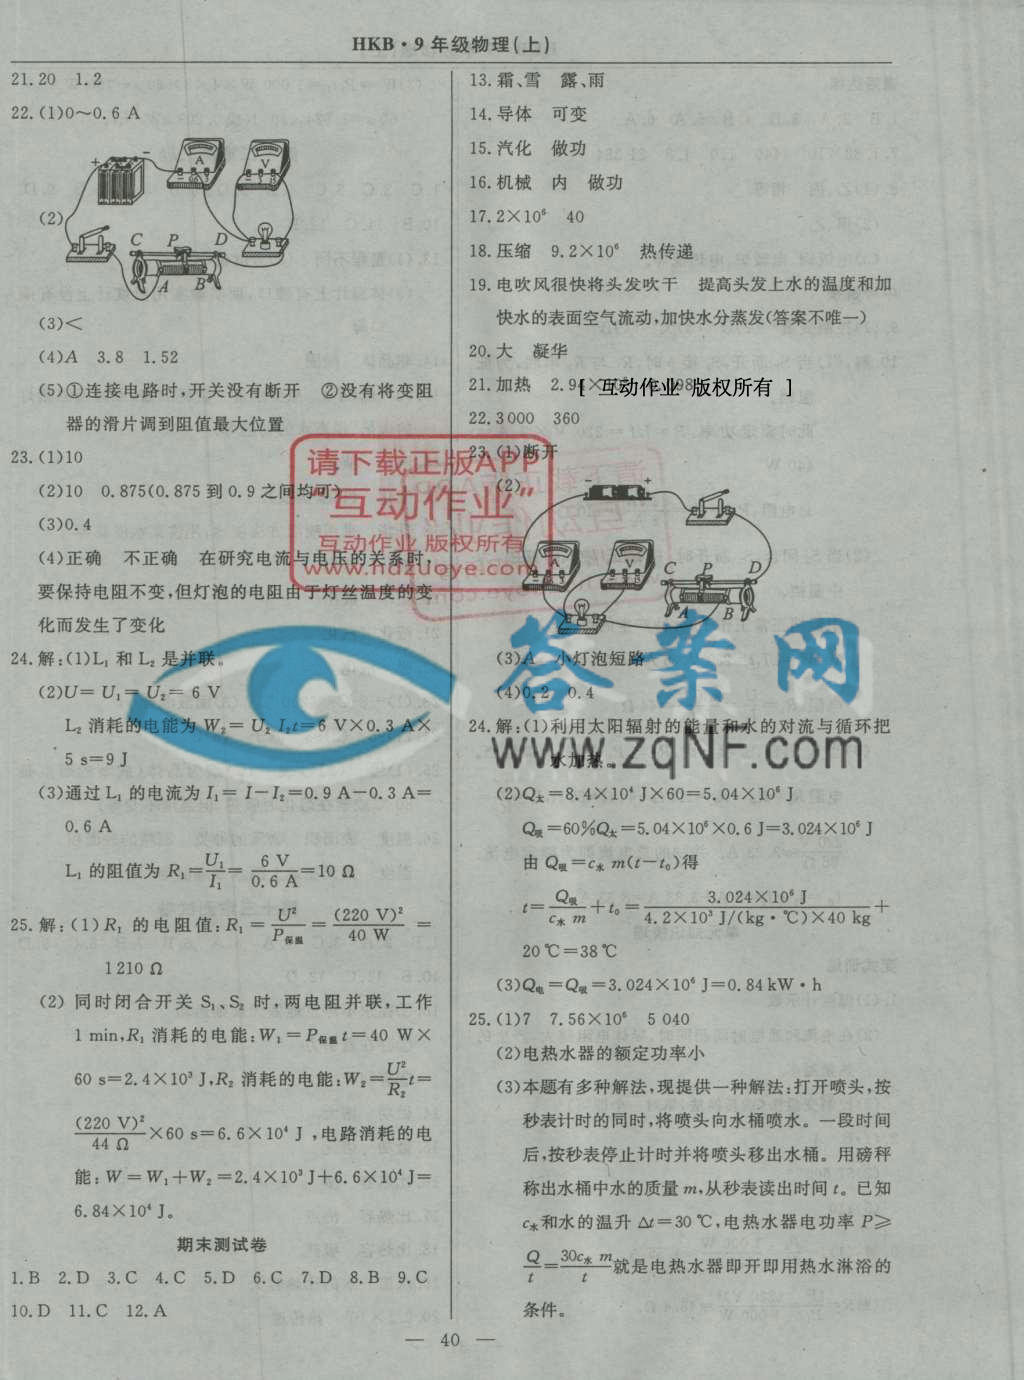 HKB·9年级物理(上)
21.20 1.2
22.(1)0～0.6 A
(2)
(3)＜
(4)A 3.8 1.52
(5)①连接电路时,开关没有断开 ②没有将变阻
器的滑片调到阻值最大位置
23.(1)10
(2)10 0.875(0.875到0.9之间均可)
(3)0.4
(4)正确 不正确 在研究电流与电压的关系时,
要保持电阻不变,但灯泡的电阻由于灯丝温度的变
化而发生了变化
24.解:(1)L₁和L₂是并联。
(2)U=U₁=U₂=6 V
L₂消耗的电能为W₂=U₂I₂t=6 V×0.3 A×
5 s=9 J
(3)通过L₁的电流为I₁=I-I₂=0.9 A-0.3 A=
0.6 A
L₁的阻值为R₁=U₁/I₁=6 V/0.6 A=10 Ω
25.解:(1)R₁的电阻值:R₁=U²/P保温=(220 V)²/40 W=
1 210 Ω
(2)同时闭合开关S₁、S₂时,两电阻并联,工作
1 min,R₁消耗的电能:W₁=P保温t=40 W×
60 s=2.4×10³ J,R₂消耗的电能:W₂=U²/R₂t=
(220 V)²/44 Ω×60 s=6.6×10⁴ J,电路消耗的电
能:W=W₁+W₂=2.4×10³ J+6.6×10⁴ J=
6.84×10⁴ J。
期末测试卷
1.B 2.D 3.C 4.C 5.D 6.C 7.D 8.B 9.C
10.D 11.C 12.A
13.霜、雪 露、雨
14.导体 可变
15.汽化 做功
16.机械 内 做功
17.2×10⁶ 40
18.压缩 9.2×10⁶ 热传递
19.电吹风很快将头发吹干 提高头发上水的温度和加
快水的表面空气流动,加快水分蒸发(答案不唯一)
20.大 凝华
21.加热 2.94×
[ 互动作业 版权所有 ]
22.3 000 360
23.(1)断开
(2)
(3)A 小灯泡短路
(4)0.2 0.4
24.解:(1)利用太阳辐射的能量和水的对流与循环把
水加热。
(2)Q太=8.4×10⁴ J×60=5.04×10⁶ J
Q吸=60%Q太=5.04×10⁶×0.6 J=3.024×10⁶ J
由Q吸=c水m(t-t₀)得
t=Q吸/c水m+t₀=3.024×10⁶ J/4.2×10³ J/(kg·℃)×40 kg+
20 ℃=38 ℃
(3)Q电=Q吸=3.024×10⁶ J=0.84 kW·h
25.(1)7 7.56×10⁶ 5 040
(2)电热水器的额定功率小
(3)本题有多种解法,现提供一种解法:打开喷头,按
秒表计时的同时,将喷头向水桶喷水。一段时间
后,按秒表停止计时并将喷头移出水桶。用磅秤
称出水桶中水的质量m,从秒表读出时间t。已知
c水和水的温升Δt=30 ℃,电热水器电功率P≥
Q/t=30c水m/t就是电热水器即开即用热水淋浴的
条件。
— 40 —
请下载正版APP
"互动作业"
互动作业 版权所有
www.hdzuoye.com
答案网
www.zqNF.com